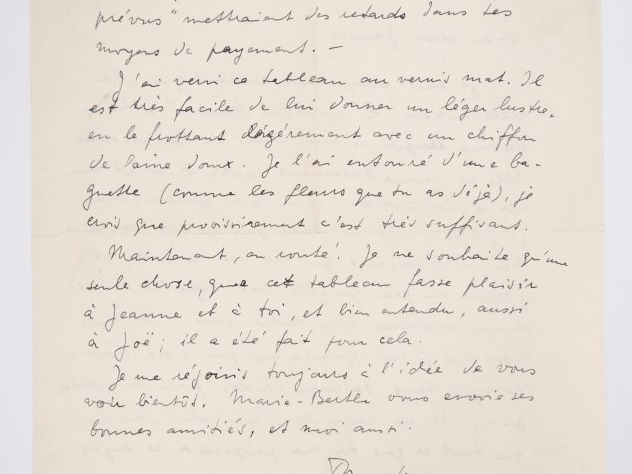 prévus" mettraient des retards dans tes
moyens de payement. —
J'ai verni ce tableau au vernis mat. Il
est très facile de lui donner un léger lustre,
en le frottant légèrement avec un chiffon
de laine doux. Je l'ai entouré d'une ba-
guette (comme les fleurs que tu as déjà), je
crois que provisoirement c'est très suffisant.
Maintenant, en route! Je ne souhaite qu'une
seule chose, que cet tableau fasse plaisir
à Jeanne et à toi, et bien entendu, aussi
à Joë; il a été fait pour cela.
Je me réjouis toujours à l'idée de vous
voir bientôt. Marie-Berthe vous envoie ses
bonnes amitiés, et moi aussi.